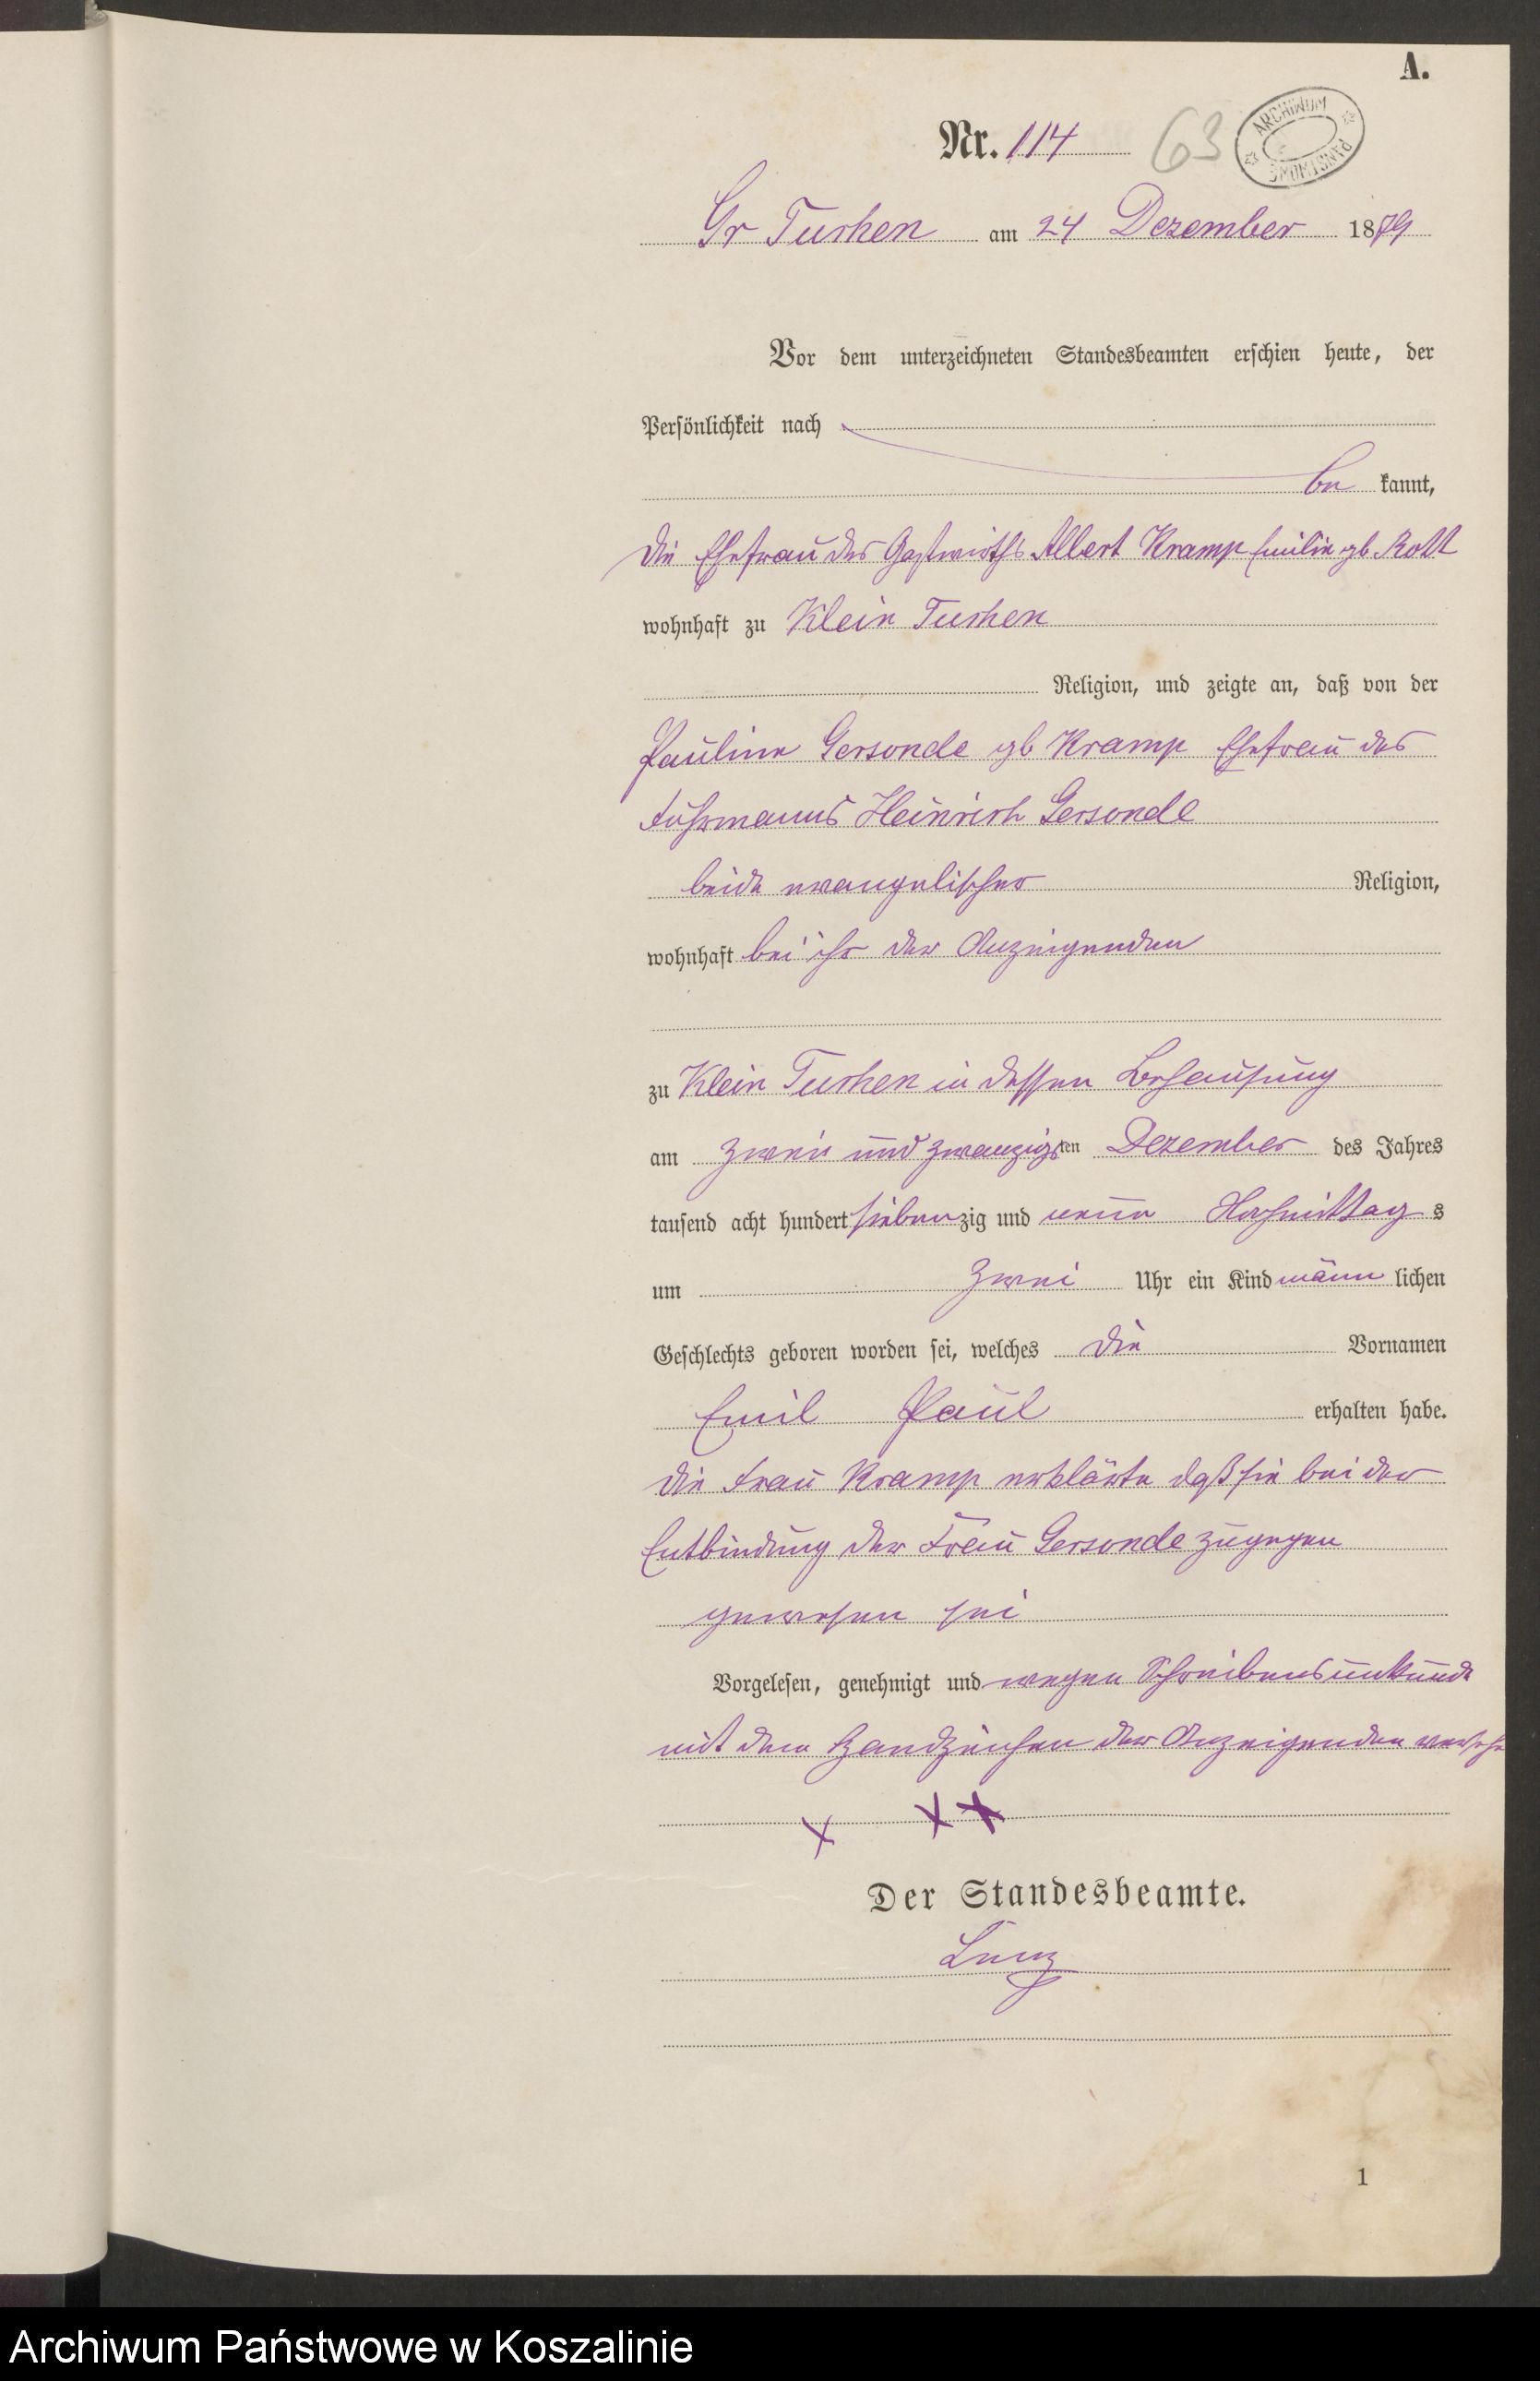 A.
Nr. 114 63
ARCHIWUM PAŃSTWOWE
Gr Tuchen am 24 Dezember 1879
Vor dem unterzeichneten Standesbeamten erschien heute, der
Persönlichkeit nach
be kannt,
die Ehefrau des Gastwirths Albert Kramp Emilie gb. Rott
wohnhaft zu Klein Tuchen
Religion, und zeigte an, daß von der
Pauline Gersonde gb Kramp Ehefrau des
Fuhrmanns Heinrich Gersonde
beide evangelischer Religion,
wohnhaft bei ihr der Anzeigenden
zu Klein Tuchen in dessen Behausung
am zwei und zwanzigsten Dezember des Jahres
tausend acht hundert siebenzig und neun Nachmittag s
um zwei Uhr ein Kind männ lichen
Geschlechts geboren worden sei, welches die Vornamen
Emil Paul erhalten habe.
die Frau Kramp erklärte daß sie bei der
Entbindung der Frau Gersonde zugegen
gewesen sei
Vorgelesen, genehmigt und wegen Schreibensunkunde
mit dem Handzeichen der Anzeigenden versehe
x x x
Der Standesbeamte.
1
Archiwum Państwowe w Koszalinie